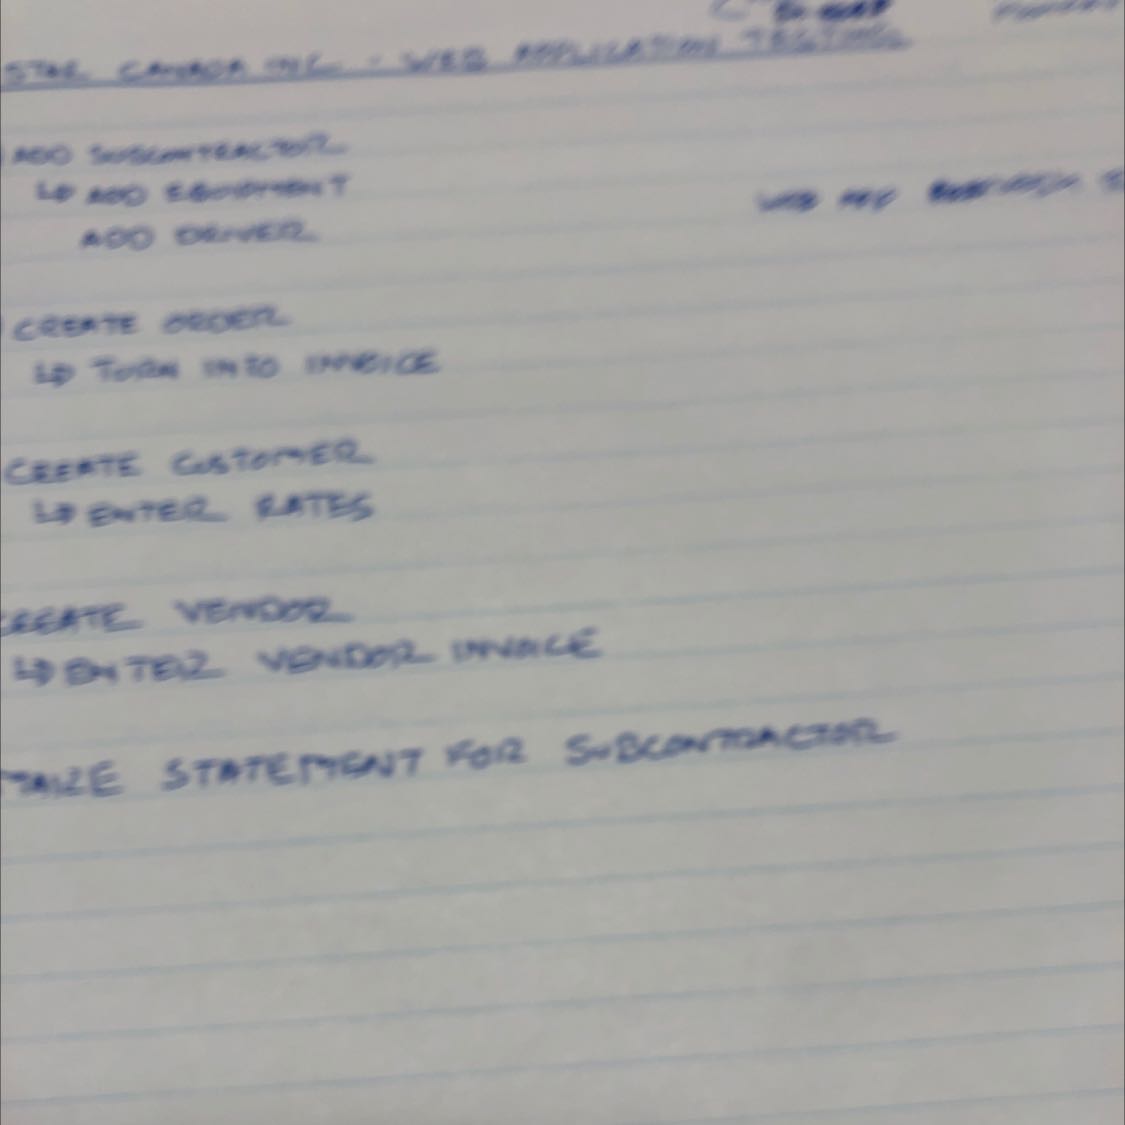 STAR CANADA INC. - WEB APPLICATION TESTING
ADD SUBCONTRACTOR
↳ ADD EQUIPMENT
ADD DRIVER
CREATE ORDER
↳ TURN INTO INVOICE
CREATE CUSTOMER
↳ ENTER RATES
CREATE VENDOR
↳ ENTER VENDOR INVOICE
MAKE STATEMENT FOR SUBCONTRACTOR